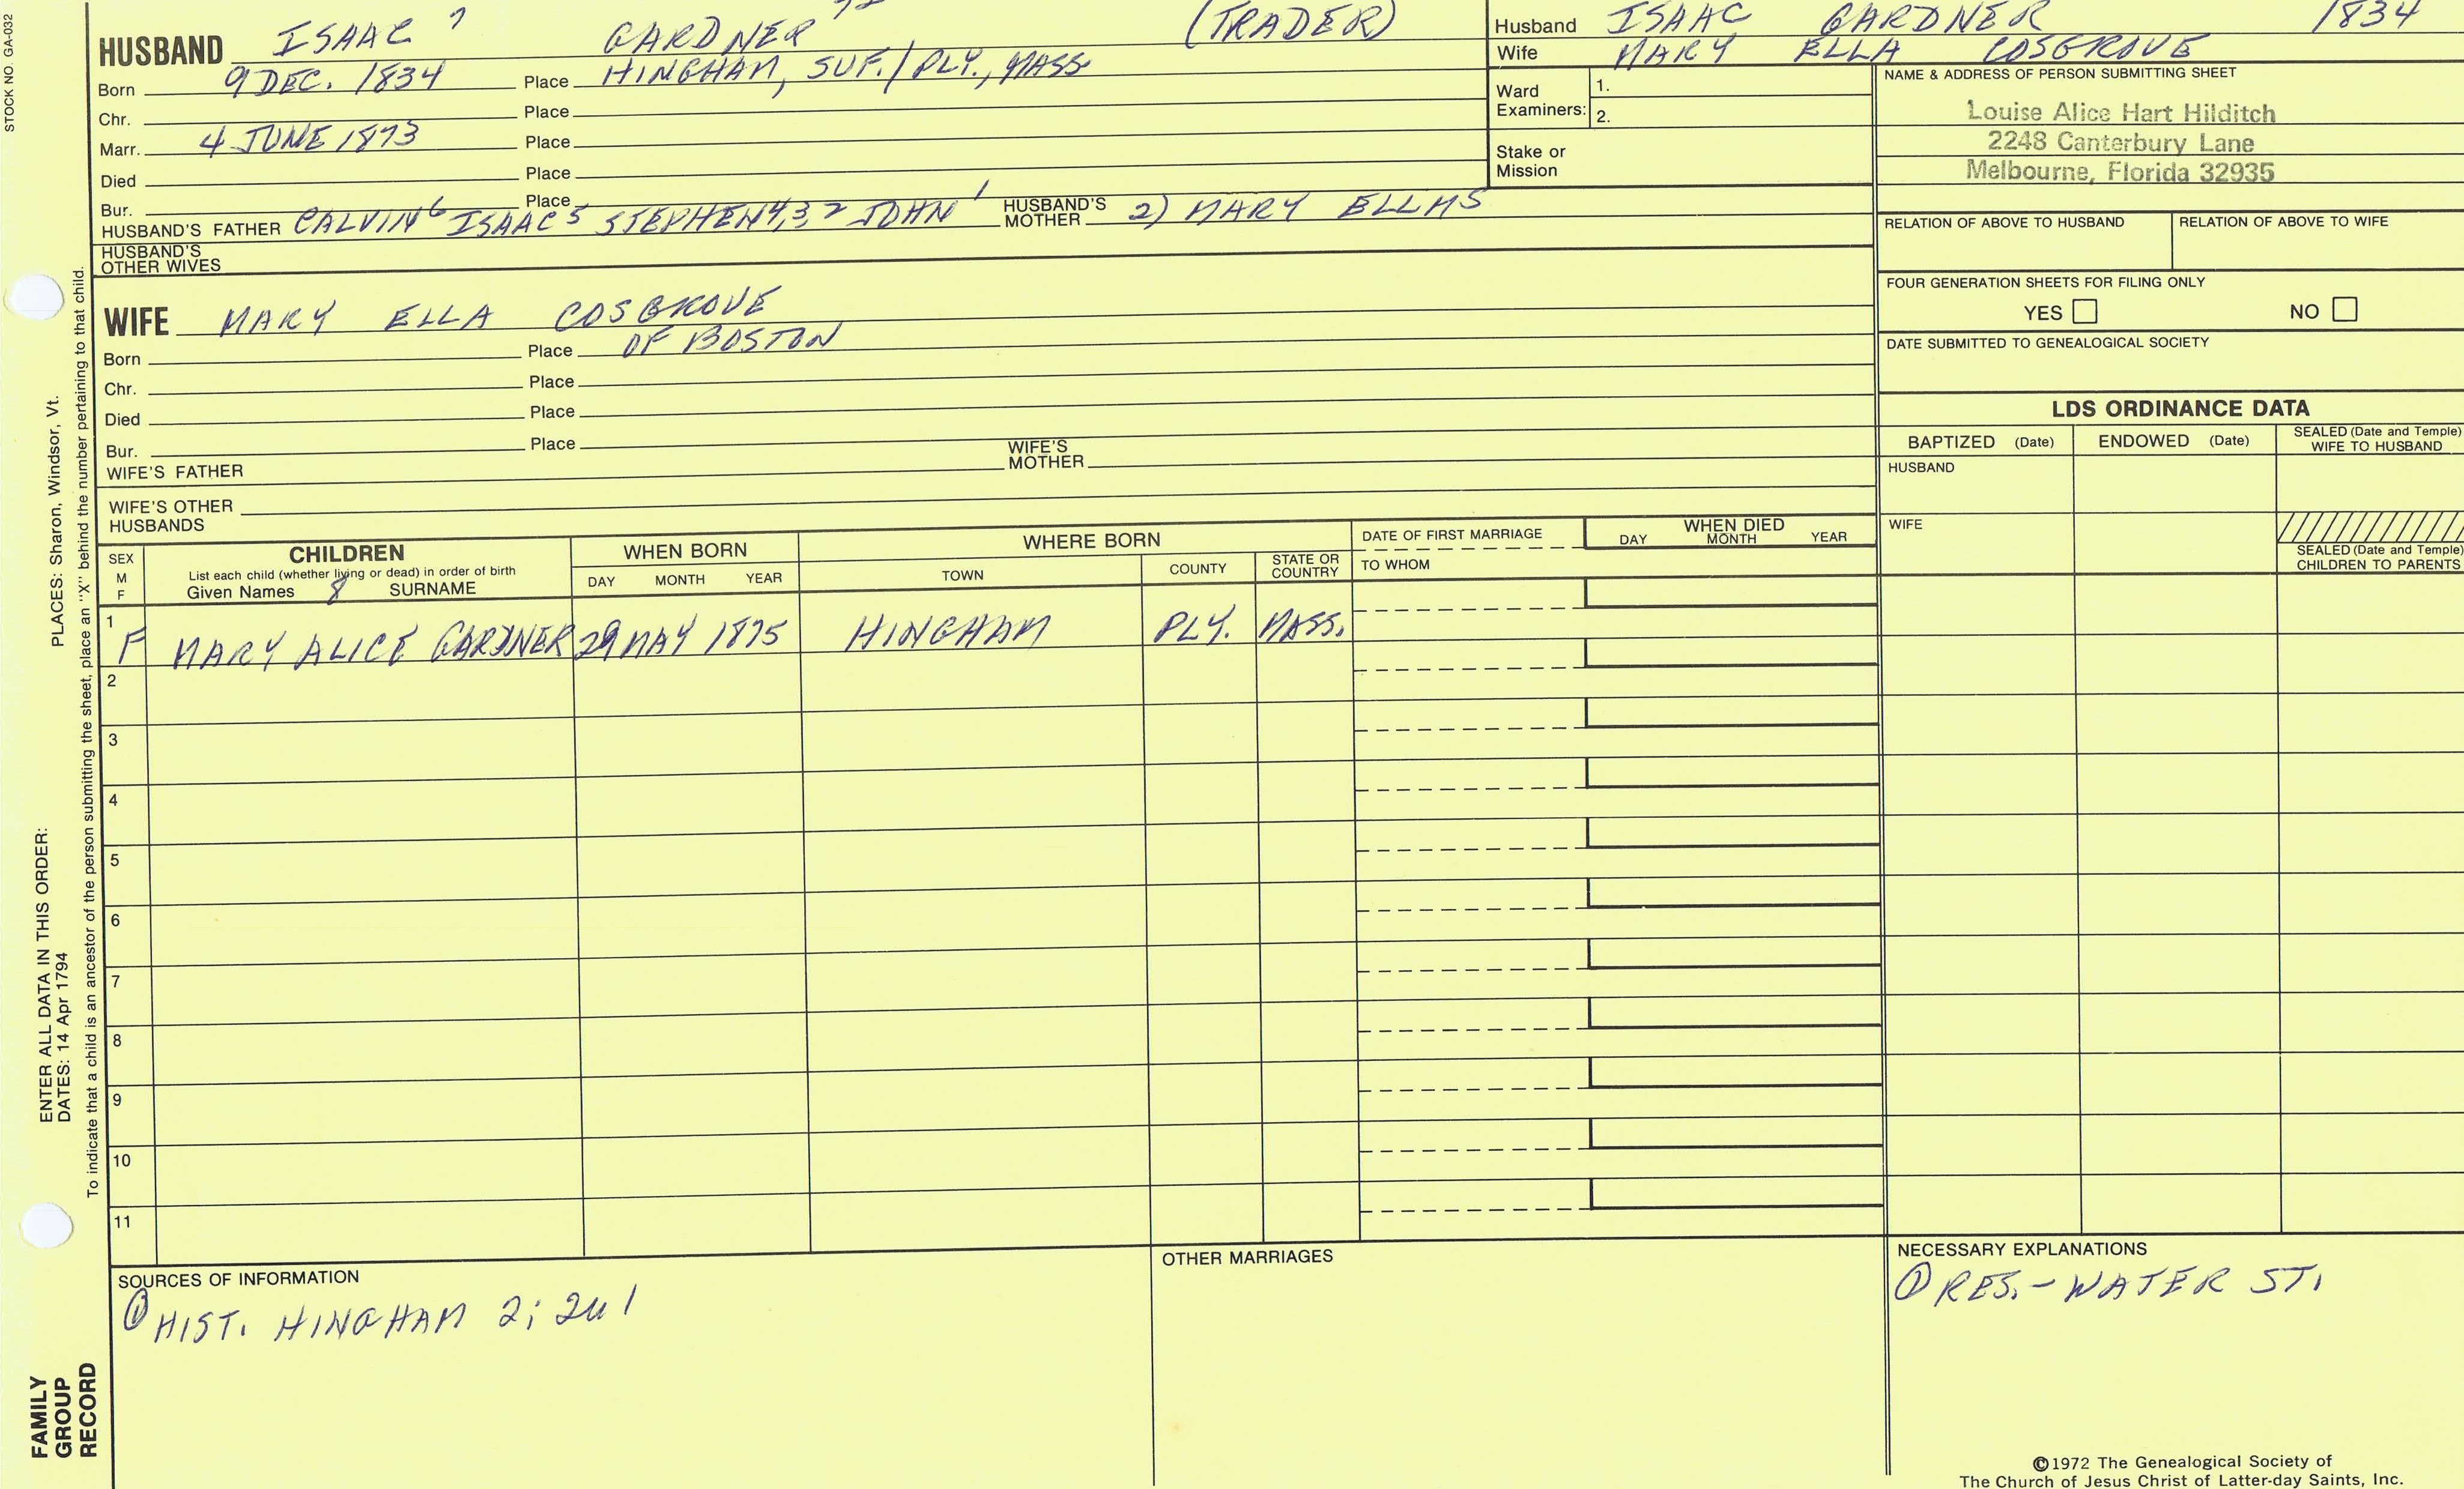 STOCK NO. GA-032
HUSBAND ISAAC 7 GARDNER (TRADER)
Born 9 DEC. 1834 Place HINGHAM, SUF./PLY., MASS
Chr. Place
Marr. 4 JUNE 1873 Place
Died Place
Bur. Place
HUSBAND'S FATHER CALVIN 6 ISAAC 5 STEPHEN 4,3 2 JOHN 1 HUSBAND'S MOTHER 2) MARY ELLMS
HUSBAND'S OTHER WIVES
Husband ISAAC GARDNER 1834
Wife MARY ELLA COSGROVE
Ward Examiners: 1.
2.
Stake or Mission
NAME & ADDRESS OF PERSON SUBMITTING SHEET
Louise Alice Hart Hilditch
2248 Canterbury Lane
Melbourne, Florida 32935
RELATION OF ABOVE TO HUSBAND RELATION OF ABOVE TO WIFE
FOUR GENERATION SHEETS FOR FILING ONLY
YES NO
DATE SUBMITTED TO GENEALOGICAL SOCIETY
WIFE MARY ELLA COSGROVE
Born Place OF BOSTON
Chr. Place
Died Place
Bur. Place
WIFE'S FATHER WIFE'S MOTHER
WIFE'S OTHER HUSBANDS
LDS ORDINANCE DATA
BAPTIZED (Date) ENDOWED (Date) SEALED (Date and Temple) WIFE TO HUSBAND
HUSBAND
WIFE
SEALED (Date and Temple) CHILDREN TO PARENTS
SEX M F
CHILDREN
List each child (whether living or dead) in order of birth
Given Names 8 SURNAME
WHEN BORN
DAY MONTH YEAR
WHERE BORN
TOWN COUNTY STATE OR COUNTRY
DATE OF FIRST MARRIAGE
TO WHOM
WHEN DIED
DAY MONTH YEAR
1 F MARY ALICE GARDNER 29 MAY 1875 HINGHAM PLY. MASS.
2
3
4
5
6
7
8
9
10
11
SOURCES OF INFORMATION
① HIST. HINGHAM 2;
OTHER MARRIAGES
NECESSARY EXPLANATIONS
① RES. - WATER ST.
©1972 The Genealogical Society of
The Church of Jesus Christ of Latter-day Saints, Inc.
FAMILY GROUP RECORD
ENTER ALL DATA IN THIS ORDER:
DATES: 14 Apr 1794
PLACES: Sharon, Windsor, Vt.
To indicate that a child is an ancestor of the person submitting the sheet, place an "X" behind the number pertaining to that child.